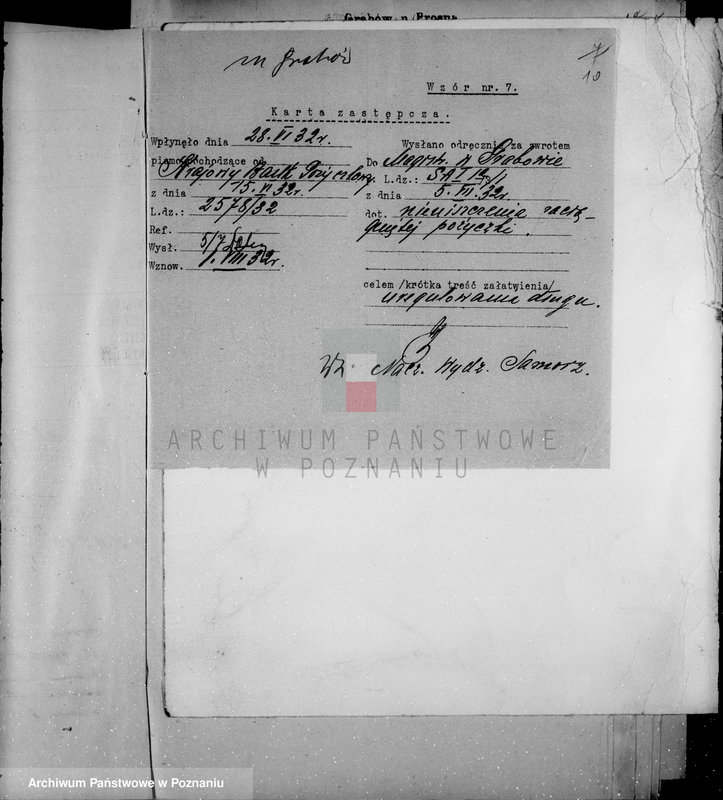 Grabów n/Prosną
m Grabów
7
10
Wzór nr. 7.
Karta zastępcza.
Wpłynęło dnia 28.VI 32r.
pismo pochodzące od
Krajowy Bank Pożyczkowy
z dnia 15.VI 32r.
L.dz.: 2578/32
Ref.
Wysł. 5/7
Wznow. 1.VIII 32r.
Wysłano odręcznie za zwrotem
Do Magistr. w Grabowie
L.dz.:
z dnia 5.VII.32r.
dot. nieuiszczenia zacią-
gniętej pożyczki.
celem /krótka treść załatwienia/
uregulowania długu.
Wz. Nacz. Wydz. Samorz.
ARCHIWUM PAŃSTWOWE
W POZNANIU
Archiwum Państwowe w Poznaniu